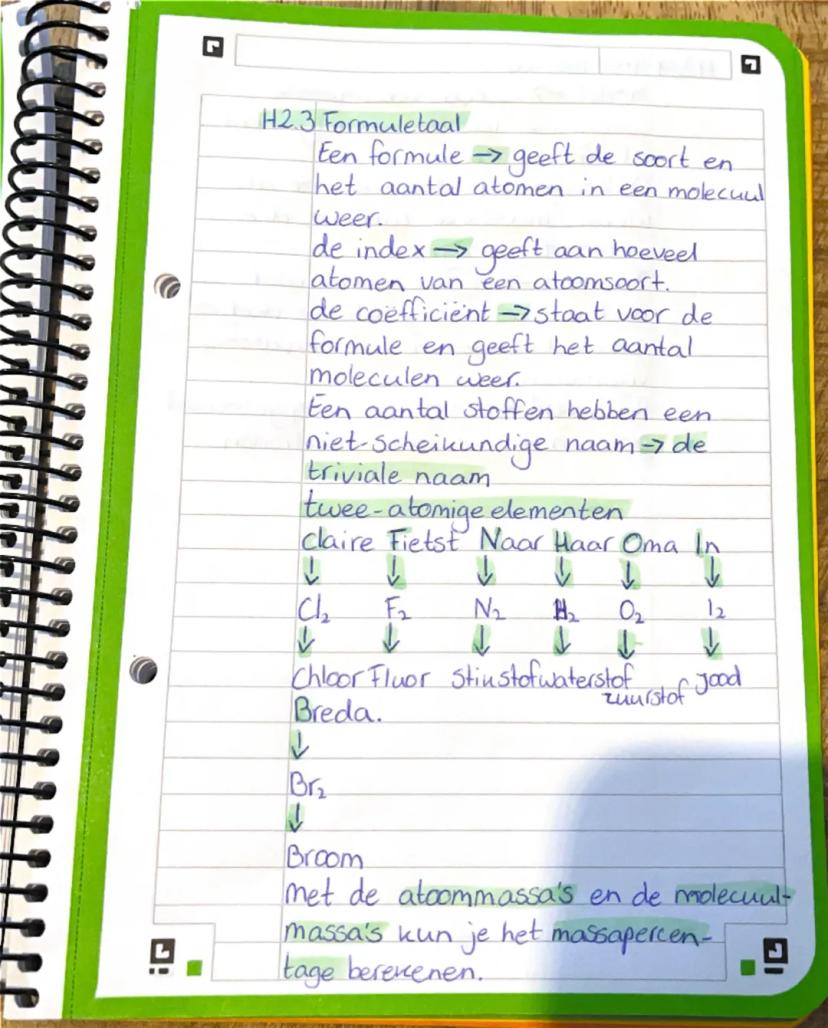 H2.3 Formuletaal
Een formule → geeft de soort en
het aantal atomen in een molecuul
weer.
de index → geeft aan hoeveel
atomen van een atoomsoort.
de coëfficiënt → staat voor de
formule en geeft het aantal
moleculen weer.
Een aantal stoffen hebben een
niet-scheikundige naam → de
triviale naam
twee-atomige elementen
Claire Fietst Naar Haar Oma In
↓ ↓ ↓ ↓ ↓ ↓
Cl₂ F₂ N₂ H₂ O₂ I₂
↓ ↓ ↓ ↓ ↓ ↓
Chloor Fluor Stikstof waterstof zuurstof jood
Breda.
↓
Br₂
↓
Broom
met de atoommassa's en de molecuul-
massa's kun je het massapercen-
tage berekenen.